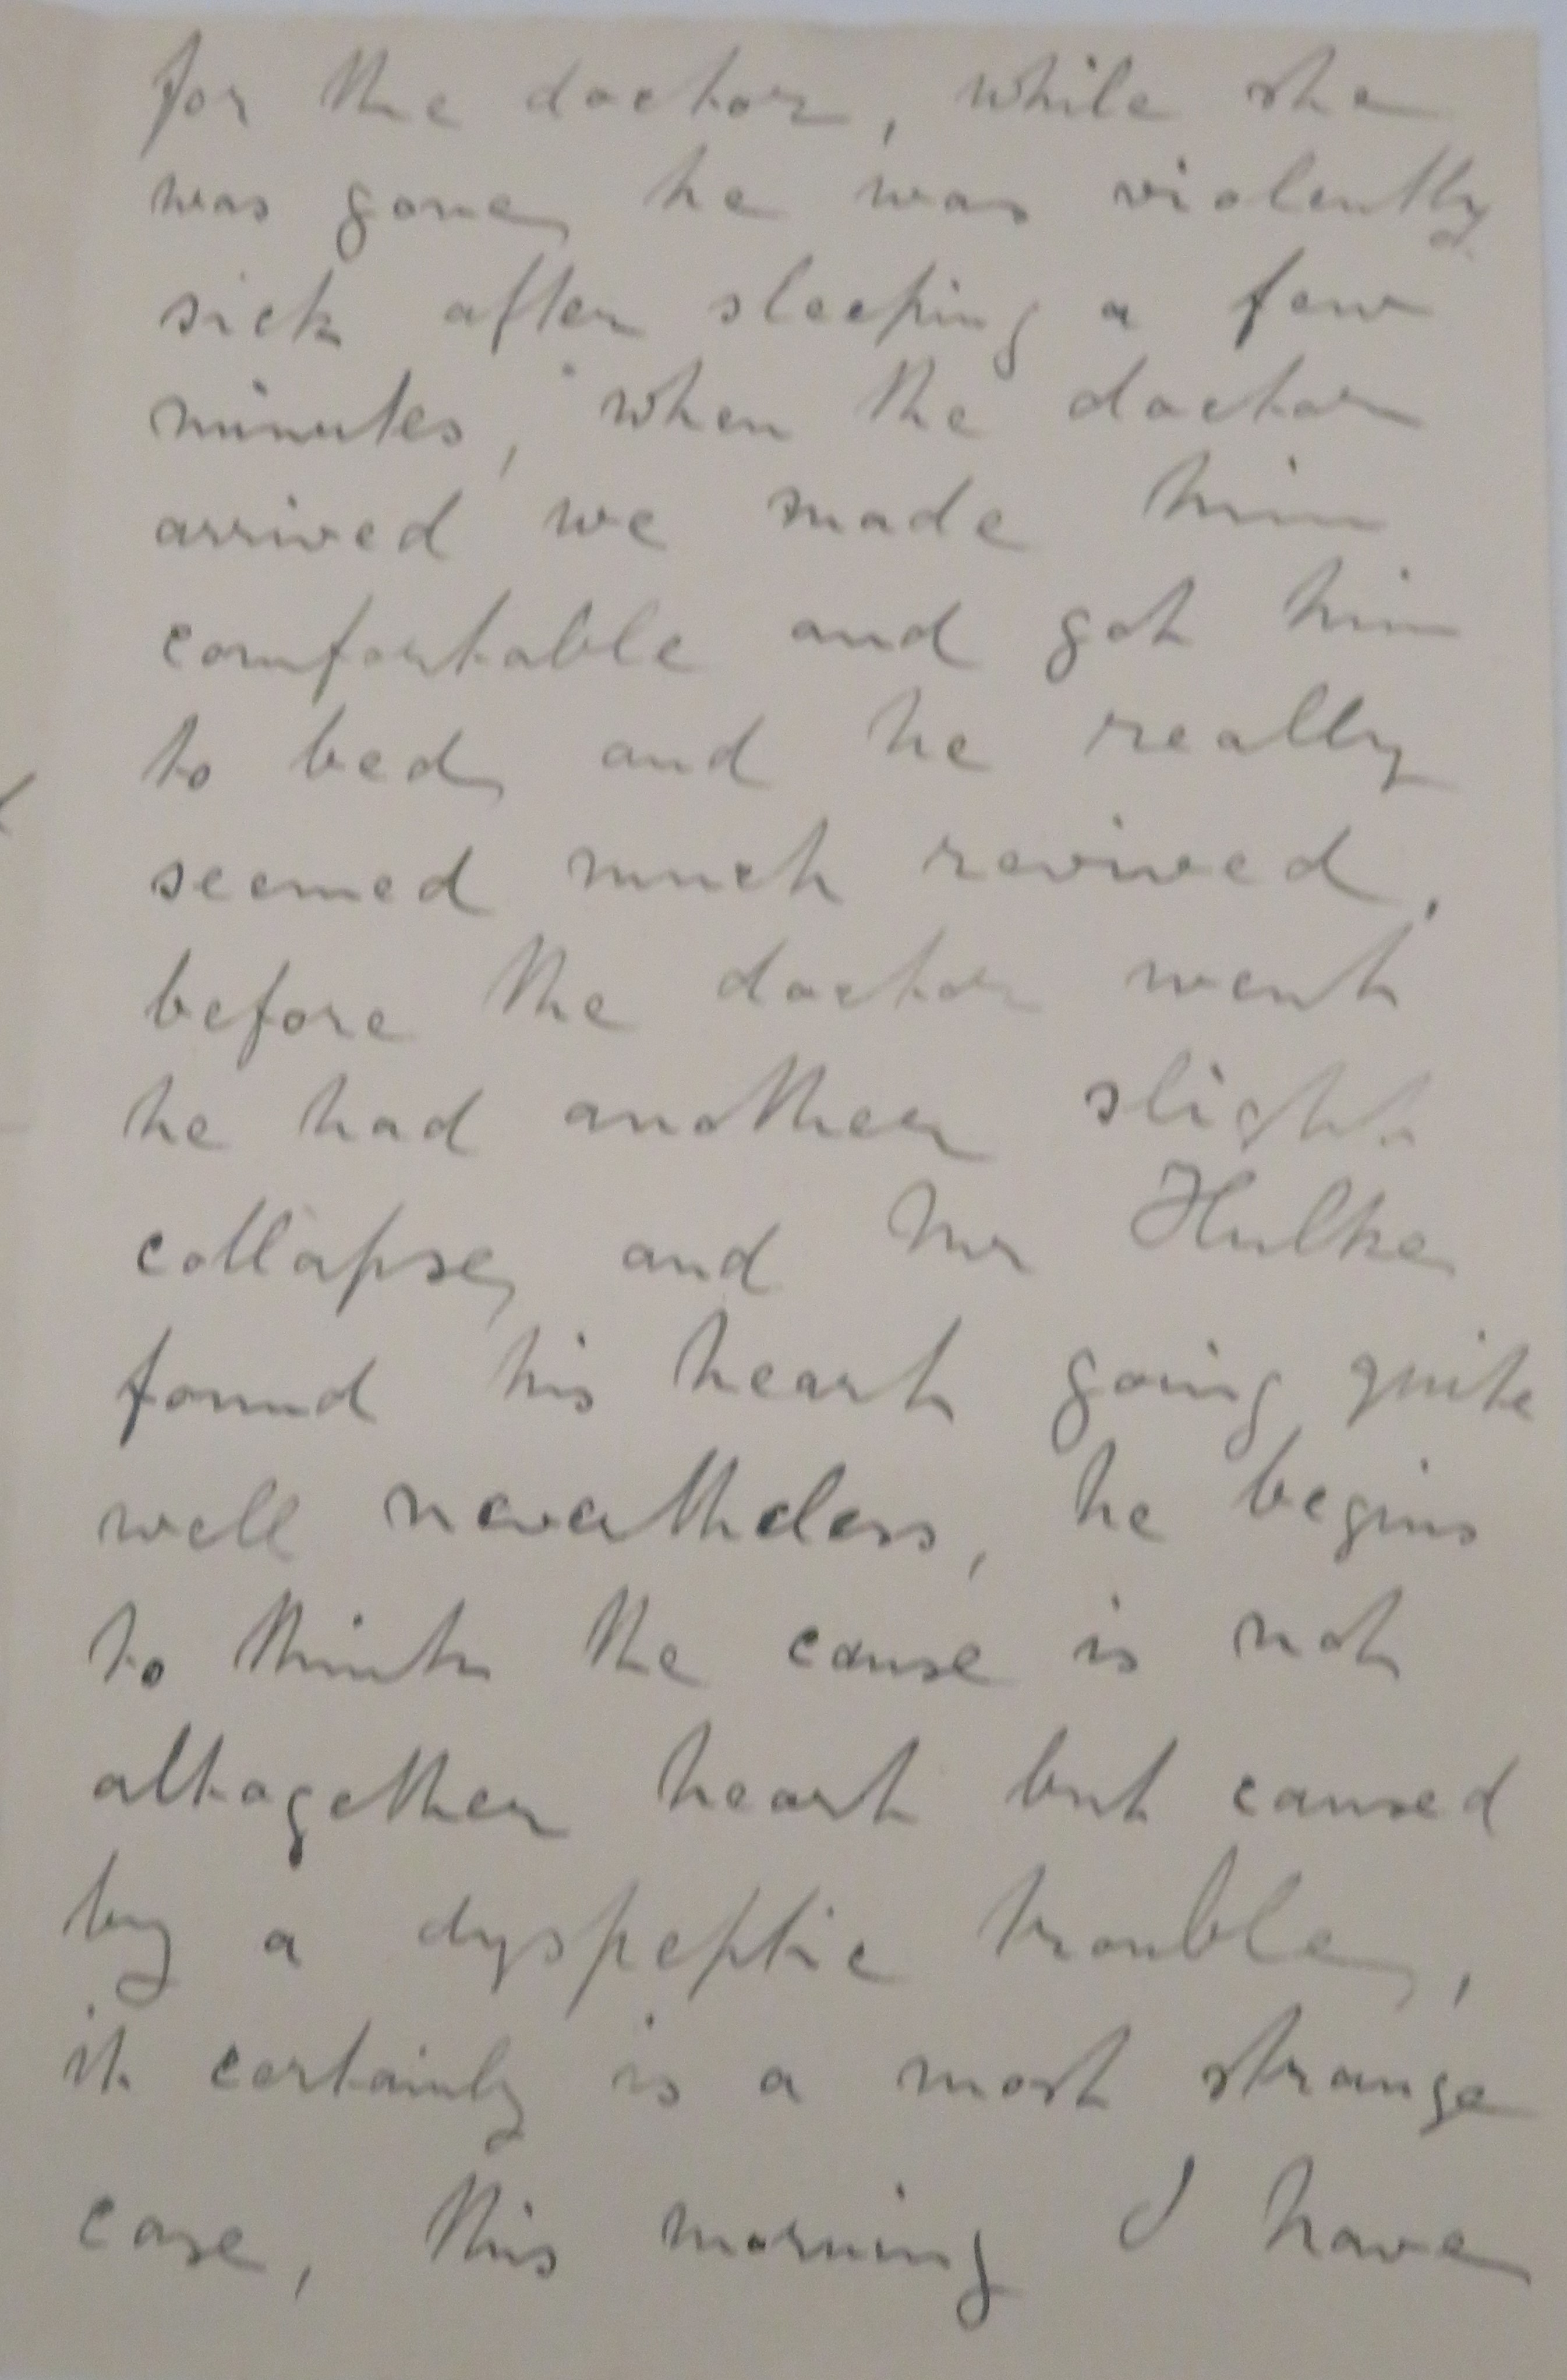 for the doctor, while she
was gone, he was violently
sick after sleeping a few
minutes, when the doctor
arrived we made him
comfortable and got him
to bed, and he really
seemed much revived,
before the doctor went
he had another slight
collapse, and Mr Hulke
found his heart going quite
well nevertheless, he begins
to think the cause is not
altogether heart but caused
by a dyspeptic trouble,
it certainly is a most strange
case, this morning I have